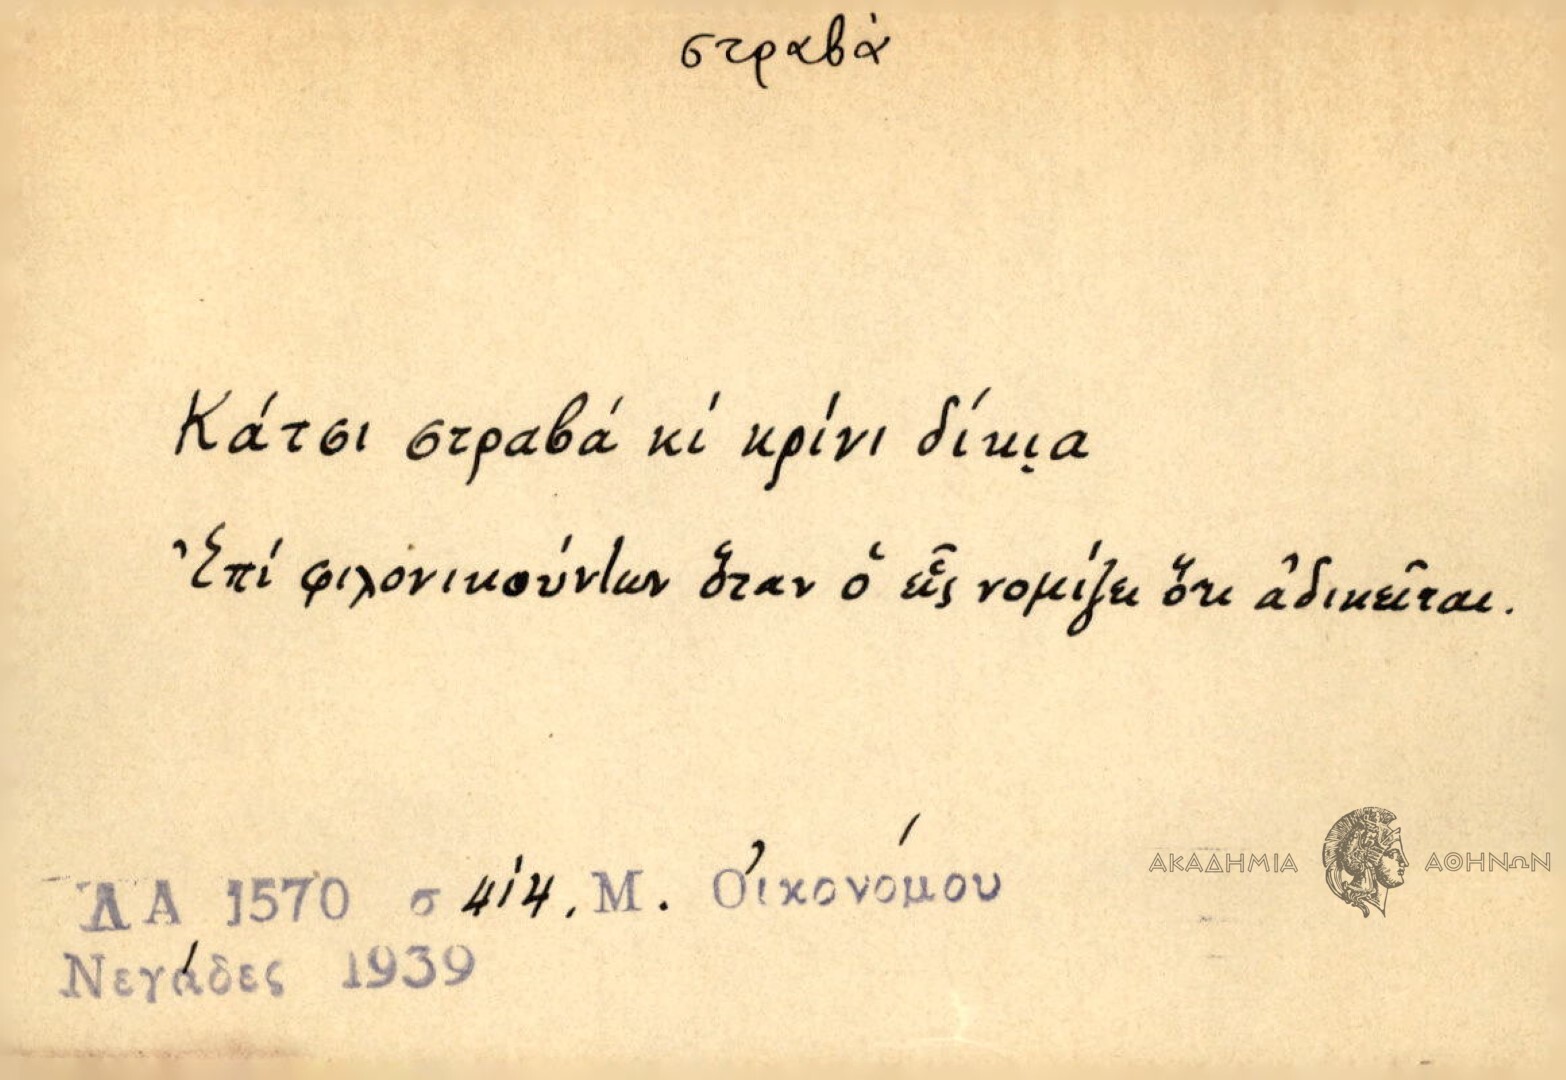 στραβὰ
Κάτσι στραβά κί κρίνι δίκι̣α
Ἐπί φιλονικούντων ὅταν ὁ εἷς νομίζει ὅτι ἀδικεῖται.
ΛΑ 1570 σ 414. Μ. Οἰκονόμου
Νεγάδες 1939
ΑΚΑΔΗΜΙΑ ΑΘΗΝΩΝ